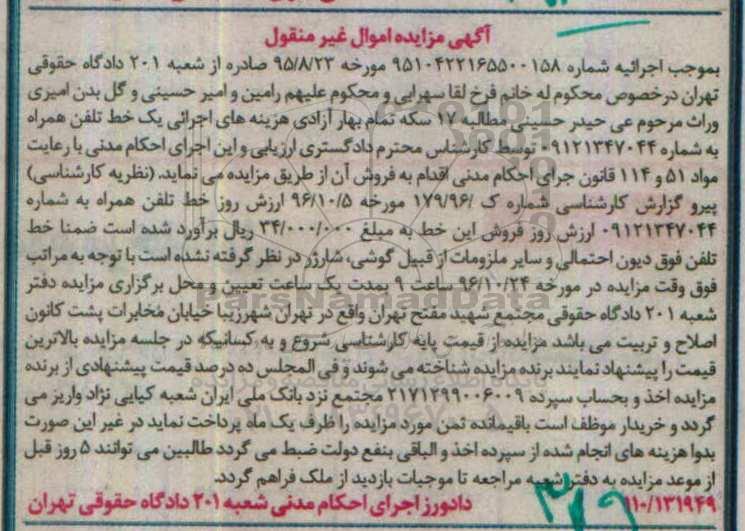 آگهی مزایده اموال غیر منقول
بموجب اجرائیه شماره ۹۵۱۰۴۲۲۱۶۵۵۰۰۱۵۸ مورخه ۹۵/۸/۲۳ صادره از شعبه ۲۰۱ دادگاه حقوقی
تهران درخصوص محکوم له خانم فرخ لقا سهرابی و محکوم علیهم رامین و امیر حسینی و گل بدن امیری
وراث مرحوم عی حیدر حسینی مطالبه ۱۷ سکه تمام بهار آزادی هزینه های اجرائی یک خط تلفن همراه
به شماره ۰۹۱۲۱۳۴۷۰۴۴ توسط کارشناس محترم دادگستری ارزیابی و این اجرای احکام مدنی با رعایت
مواد ۵۱ و ۱۱۴ قانون جرای احکام مدنی اقدام به فروش آن از طریق مزایده می نماید. (نظریه کارشناسی)
پیرو گزارش کارشناسی شماره ک /۱۷۹/۹۶ مورخه ۹۶/۱۰/۵ ارزش روز خط تلفن همراه به شماره
۰۹۱۲۱۳۴۷۰۴۴ ارزش روز فروش این خط به مبلغ ۳۴/۰۰۰/۰۰۰ ریال برآورد شده است ضمنا خط
تلفن فوق دیون احتمالی و سایر ملزومات از قبیل گوشی، شارژر در نظر گرفته نشده است با توجه به مراتب
فوق وقت مزایده در مورخه ۹۶/۱۰/۲۴ ساعت ۹ بمدت یک ساعت تعیین و محل برگزاری مزایده دفتر
شعبه ۲۰۱ دادگاه حقوقی مجتمع شهید مفتح تهران واقع در تهران شهرزیبا خیابان مخابرات پشت کانون
اصلاح و تربیت می باشد مزایده از قیمت پایه کارشناسی شروع و به کسانیکه در جلسه مزایده بالاترین
قیمت را پیشنهاد نمایند برنده مزایده شناخته می شوند و فی المجلس ده درصد قیمت پیشنهادی از برنده
مزایده اخذ و بحساب سپرده ۲۱۷۱۲۹۹۰۰۶۰۰۹ مجتمع نزد بانک ملی ایران شعبه کیایی نژاد واریز می
گردد و خریدار موظف است باقیمانده ثمن مورد مزایده را ظرف یک ماه پرداخت نماید در غیر این صورت
بدوا هزینه های انجام شده از سپرده اخذ و الباقی بنفع دولت ضبط می گردد طالبین می توانند ۵ روز قبل
از موعد مزایده به دفتر شعبه مراجعه تا موجبات بازدید از ملک فراهم گردد.
۱۱۰/۱۳۱۹۴۹ دادورز اجرای احکام مدنی شعبه ۲۰۱ دادگاه حقوقی تهران
ParsNamadData